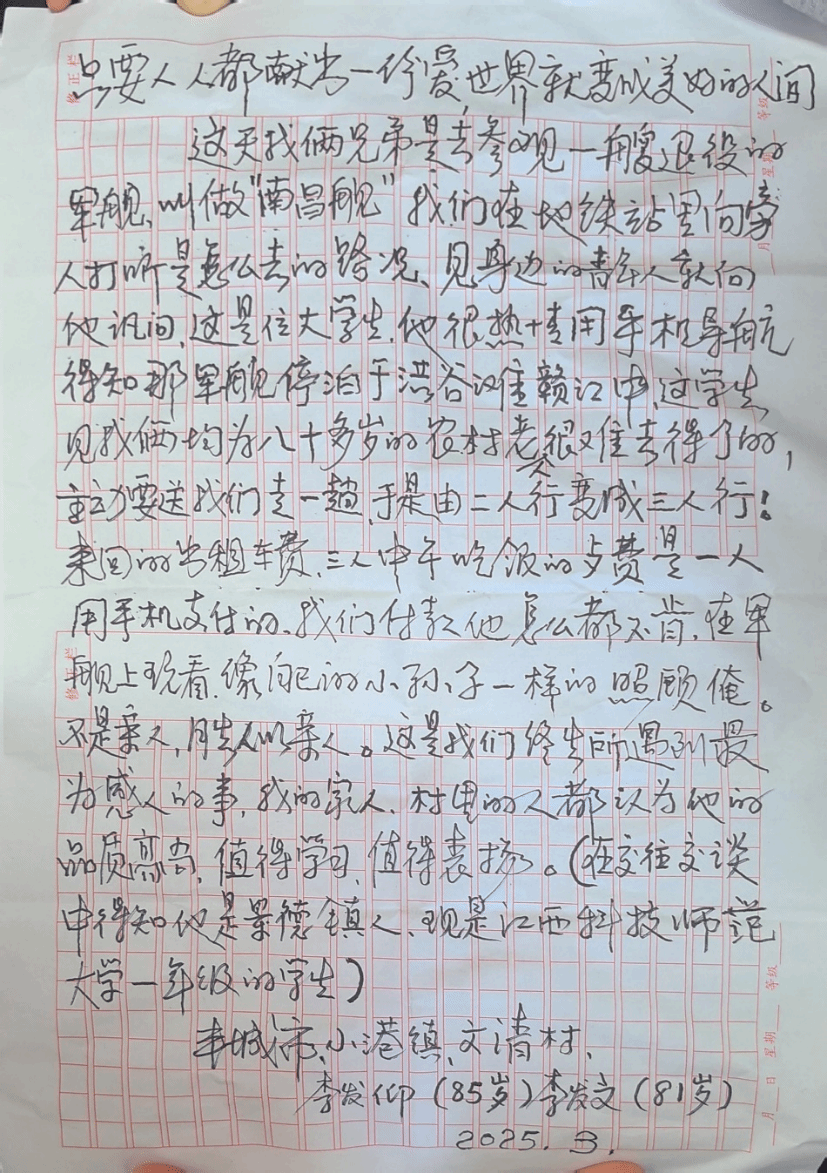 只要人人都献出一份爱,世界就变成美好的人间
这天我俩兄弟是去参观一艘退役的
军舰、叫做"南昌舰"我们在地铁站里向旁
人打听是怎么去的路况、见身边的青年人就向
他讯问,这是位大学生.他很热情用手机导航
得知那军舰停泊于洪谷滩赣江中,这学生
见我俩均为八十多岁的农村老人很难去得了的,
主动要送我们走一趟,于是由二人行变成三人行!
来回的出租车费、三人中午吃饭的费是一人
用手机支付的、我们付款他怎么都不肯.在军
舰上观看.像自己的小孙子一样的照顾俺。
不是亲人,胜似亲人。这是我们终生所遇到最
为感人的事,我的家人.村里的人都认为他的
品质高尚,值得学习,值得表扬。(在交往交谈
中得知他是景德镇人、现是江西科技师范
大学一年级的学生)
丰城市、小港镇、文清村、
李发仰(85岁)李发文(81岁)
2025. 3.
修正栏
等级
星期
月
修正栏
月 日 星期 等级